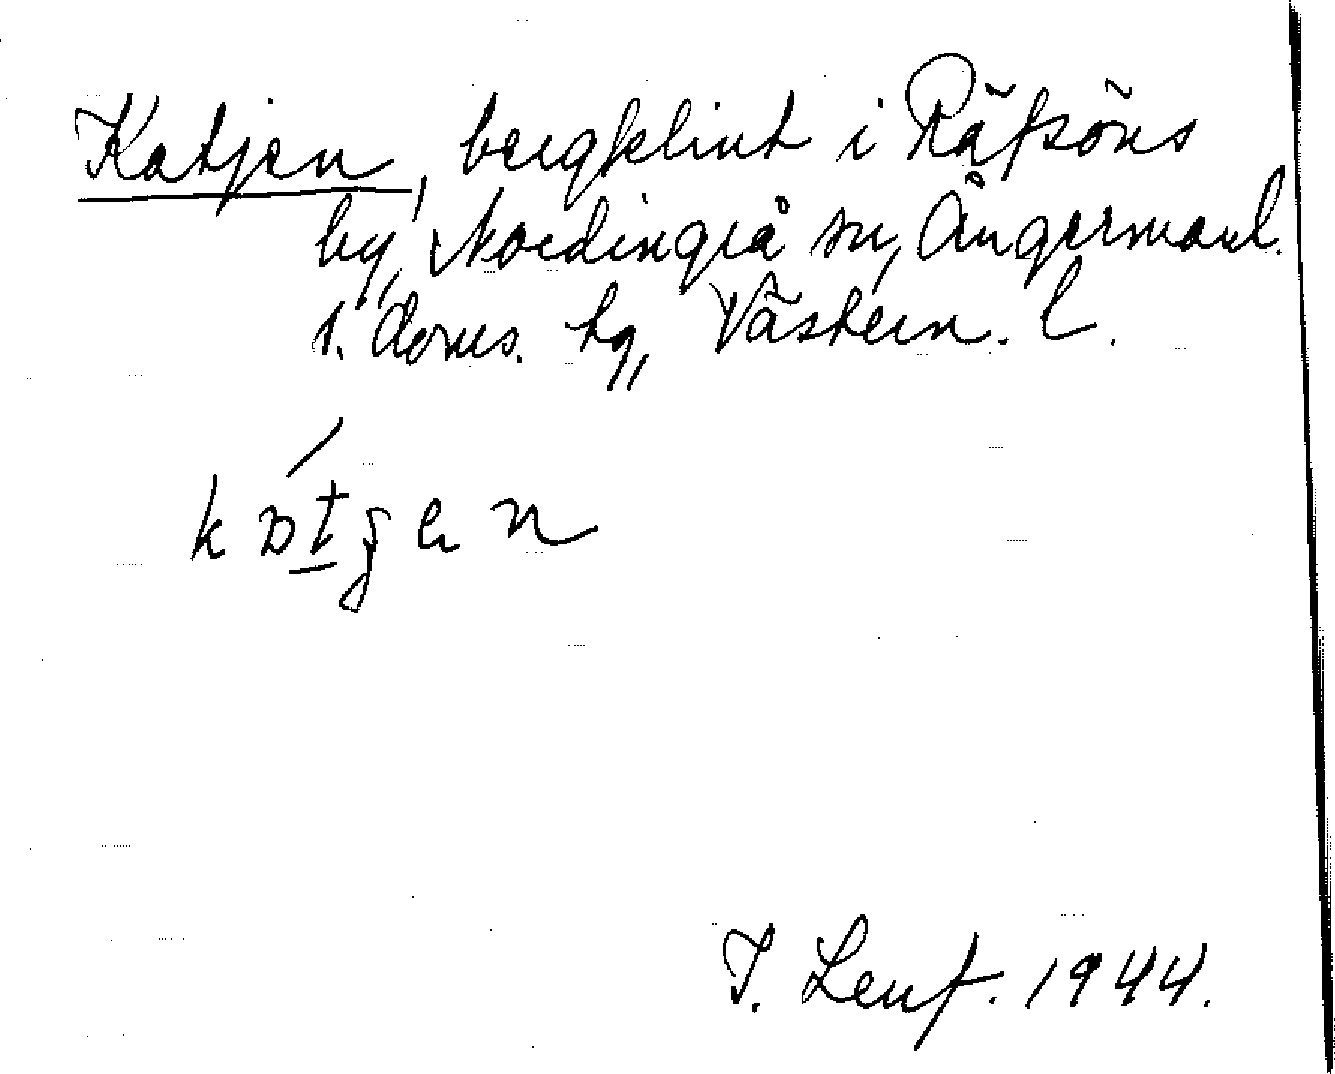 Katjen, bergklint i Räfsöns
by, Nordingrå sn, Ångermanl.
s. doms. hg, Västern. l.
kɒ́tjen
J. Lenf. 1944.